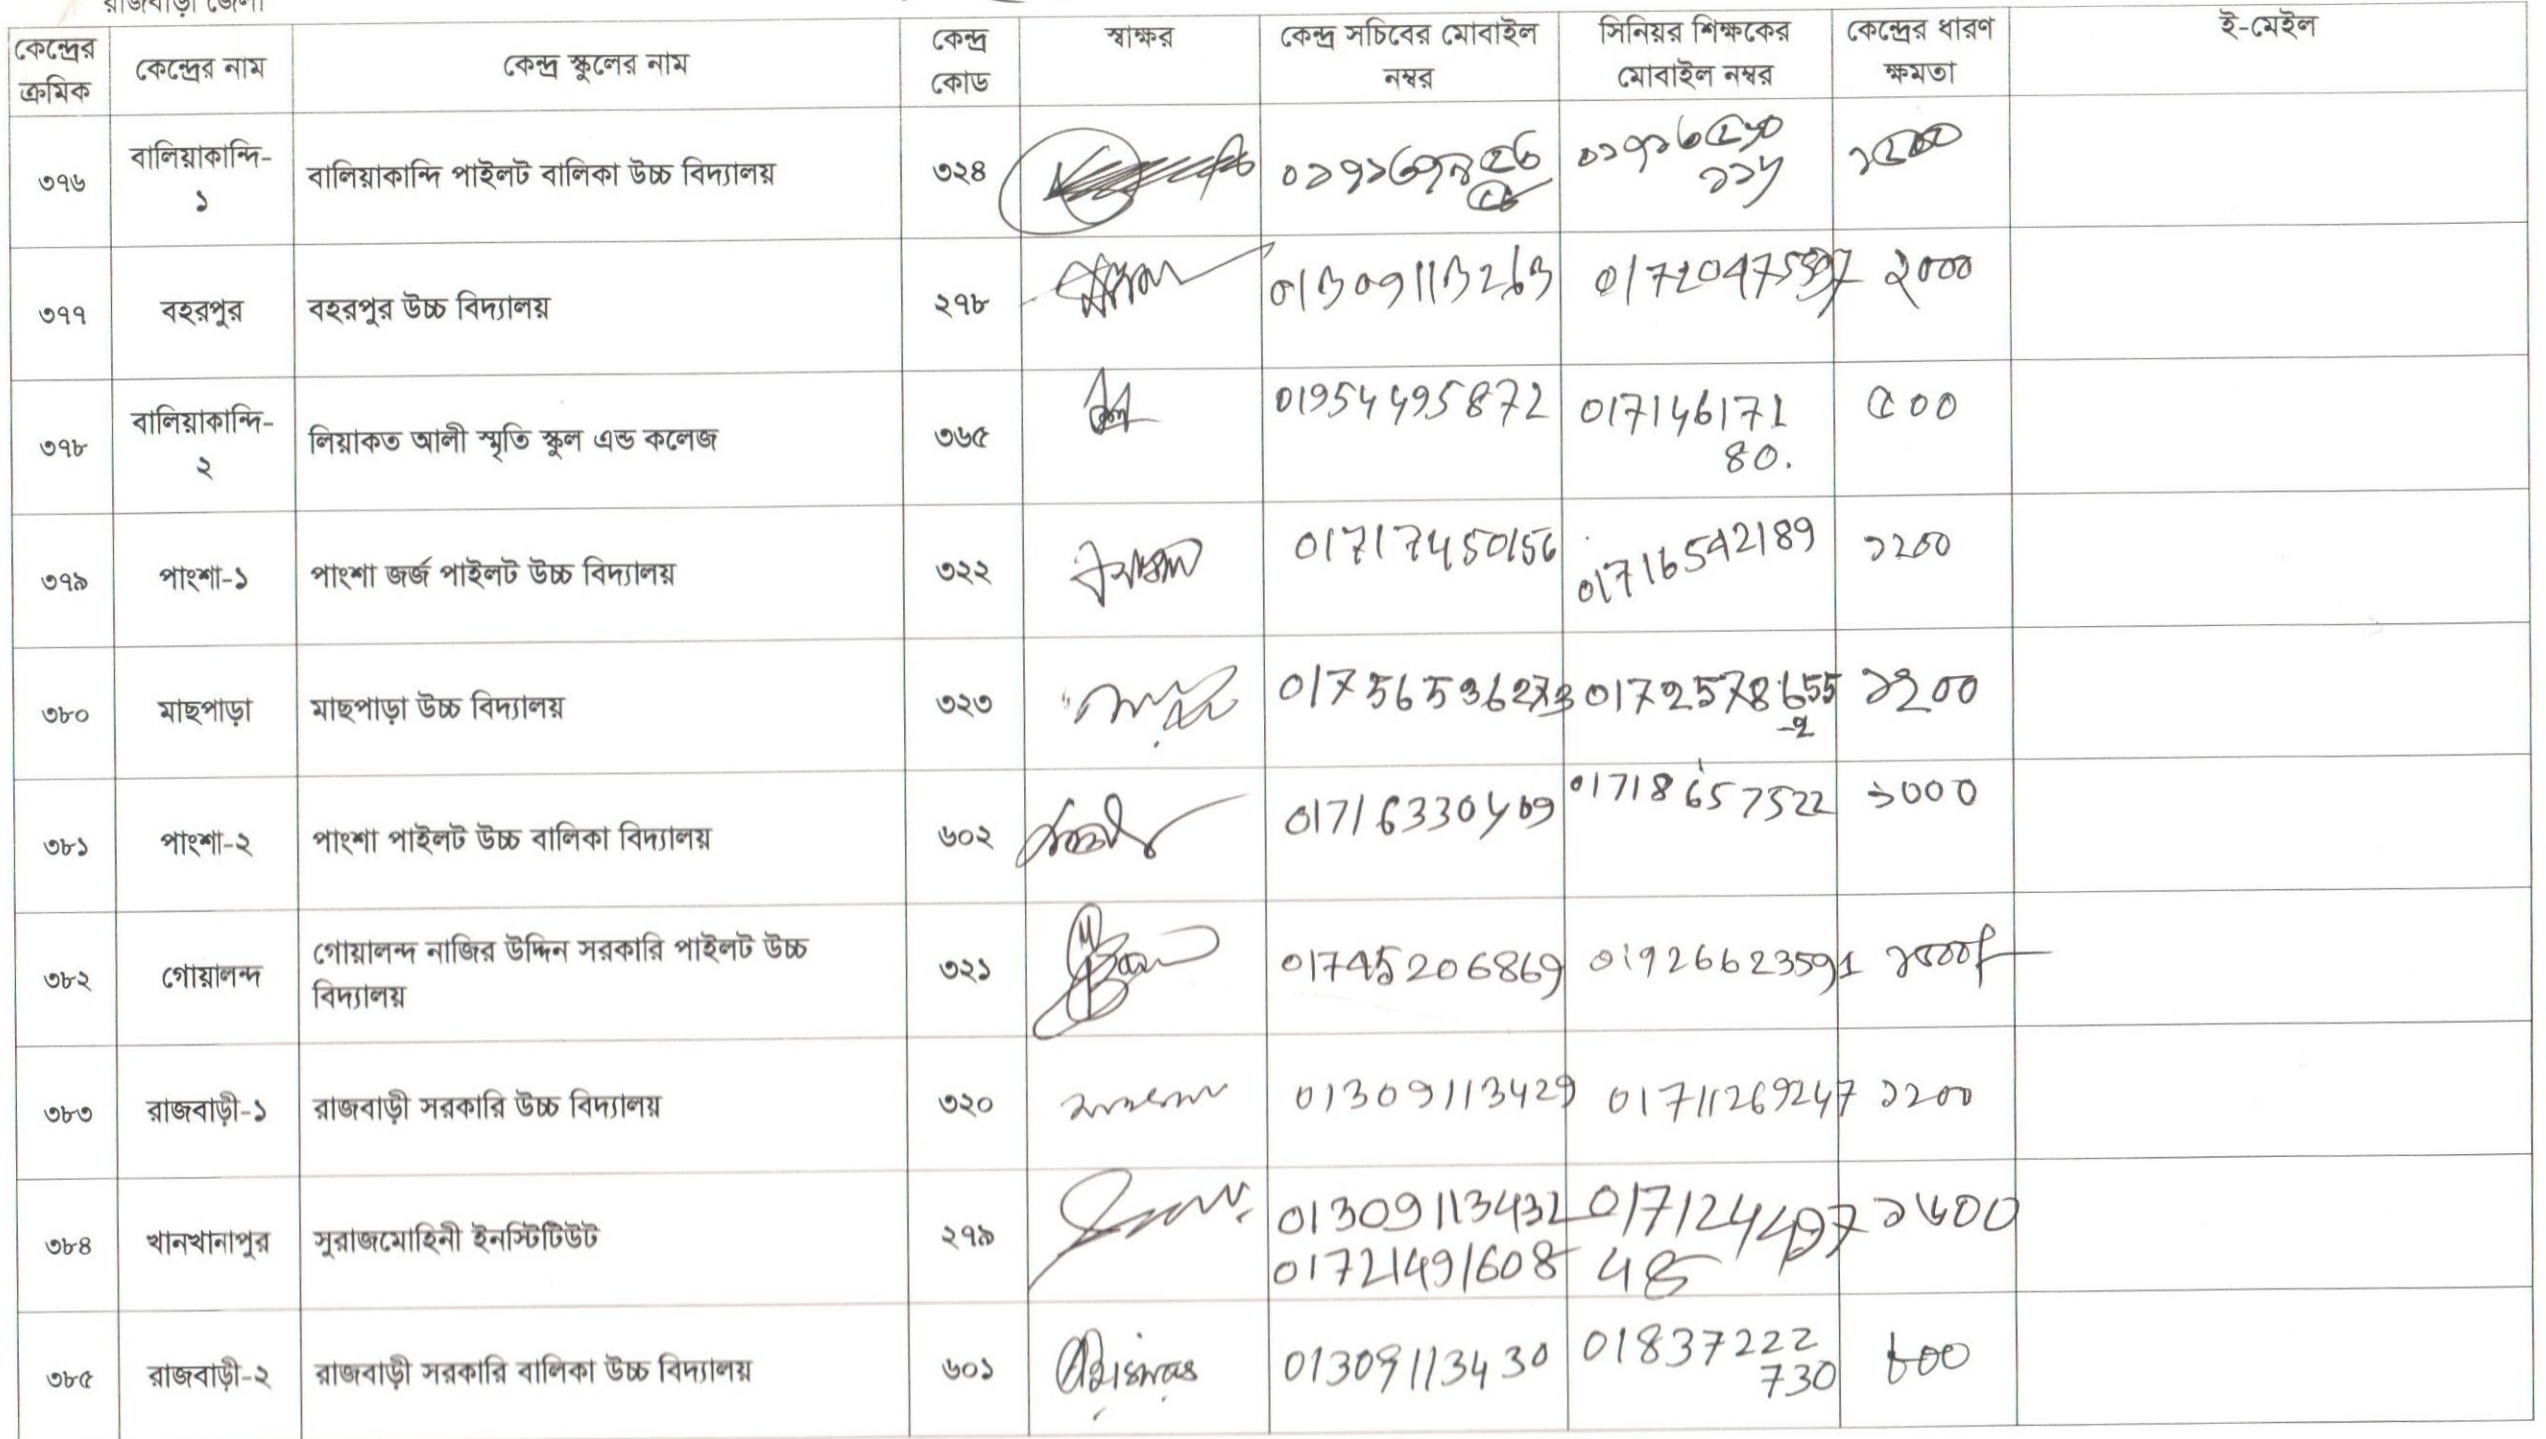 রাজবাড়ী জেলা
কেন্দ্রের ক্রমিক কেন্দ্রের নাম কেন্দ্র স্কুলের নাম কেন্দ্র কোড স্বাক্ষর কেন্দ্র সচিবের মোবাইল নম্বর সিনিয়র শিক্ষকের মোবাইল নম্বর কেন্দ্রের ধারণ ক্ষমতা ই-মেইল
৩৭৬ বালিয়াকান্দি-১ বালিয়াকান্দি পাইলট বালিকা উচ্চ বিদ্যালয় ৩২৪
৩৭৭ বহরপুর বহরপুর উচ্চ বিদ্যালয় ২৭৮ 01309113263 ২০০০
৩৭৮ বালিয়াকান্দি-২ লিয়াকত আলী স্মৃতি স্কুল এন্ড কলেজ ৩৬৫ 01954495872 017146171
80. ৫০০
৩৭৯ পাংশা-১ পাংশা জর্জ পাইলট উচ্চ বিদ্যালয় ৩২২ 01717450156 01716542189 ১২০০
৩৮০ মাছপাড়া মাছপাড়া উচ্চ বিদ্যালয় ৩২৩ ১২০০
৩৮১ পাংশা-২ পাংশা পাইলট উচ্চ বালিকা বিদ্যালয় ৬০২ 01718657522 ১০০০
৩৮২ গোয়ালন্দ গোয়ালন্দ নাজির উদ্দিন সরকারি পাইলট উচ্চ
বিদ্যালয় ৩২১ 01745206869 01926623591
৩৮৩ রাজবাড়ী-১ রাজবাড়ী সরকারি উচ্চ বিদ্যালয় ৩২০ 01309113429 01711269247 ১২০০
৩৮৪ খানখানাপুর সুরাজমোহিনী ইনস্টিটিউট ২৭৯ 01309113432 ১৬০০
01721491608 48
৩৮৫ রাজবাড়ী-২ রাজবাড়ী সরকারি বালিকা উচ্চ বিদ্যালয় ৬০১ Biswas 01309113430 01837222
730 ৮০০